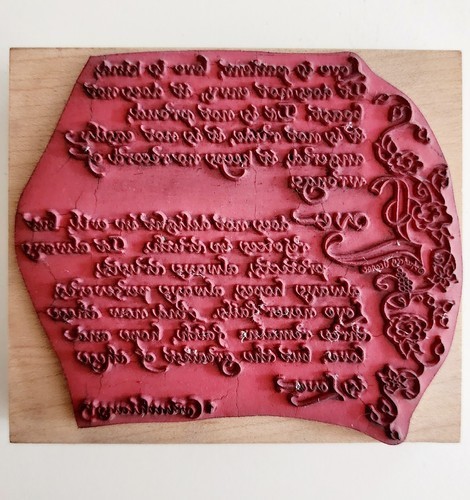 Love is patient, love is kind.
does not envy, it does not
boast, it is not proud.
is not rude, is not easily
angered, it keeps no record of
wrongs
does not delight in evil but
in truth. It always
protects, always trusts,
always hopes, always perseveres
Love never fails. And now these
three remain: faith, hope and
love. But the greatest of these
is love.
Corinthians